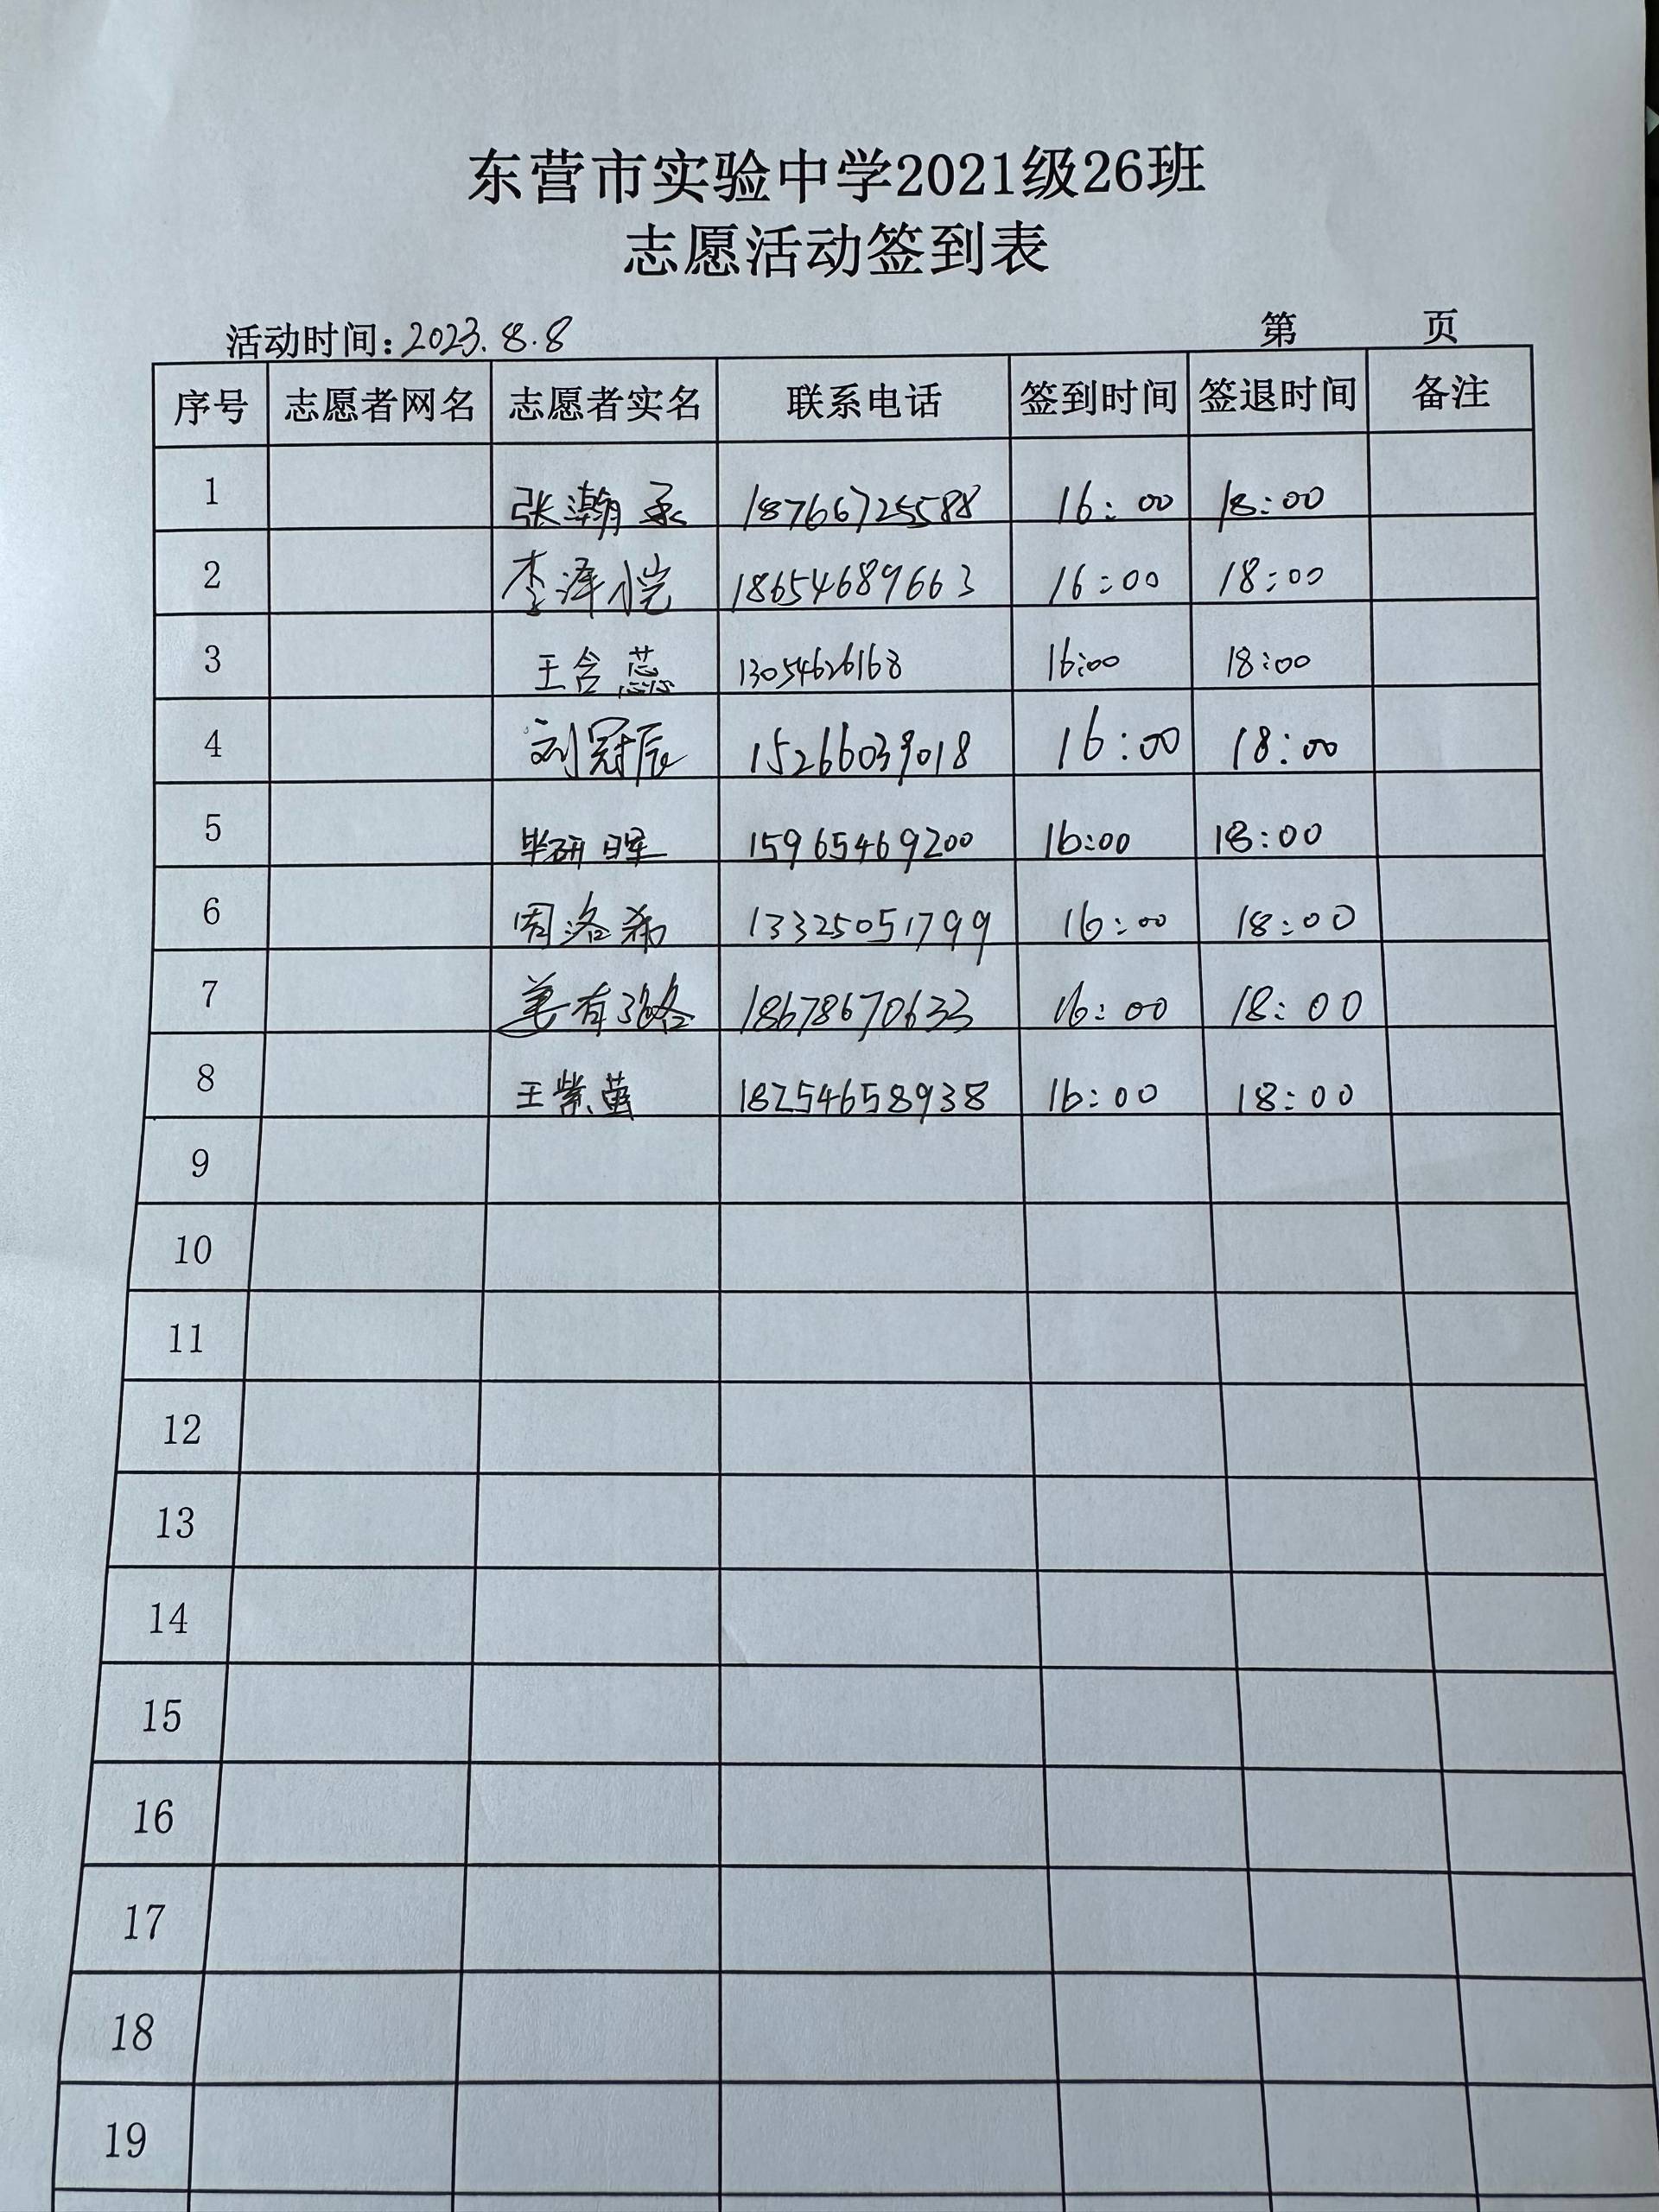 东营市实验中学2021级26班
志愿活动签到表
活动时间:2023.8.8 第 页
序号 志愿者网名 志愿者实名 联系电话 签到时间 签退时间 备注
1 张瀚承 18766725588 16:00 18:00
2 李泽恺 18654689663 16:00 18:00
3 王含蕊 13054626168 16:00 18:00
4 刘冠辰 15266039018 16:00 18:00
5 毕研晖 15965469200 16:00 18:00
6 周洛希 13325051799 16:00 18:00
7 姜有璐 18678670633 16:00 18:00
8 王紫萤 18254658938 16:00 18:00
9
10
11
12
13
14
15
16
17
18
19